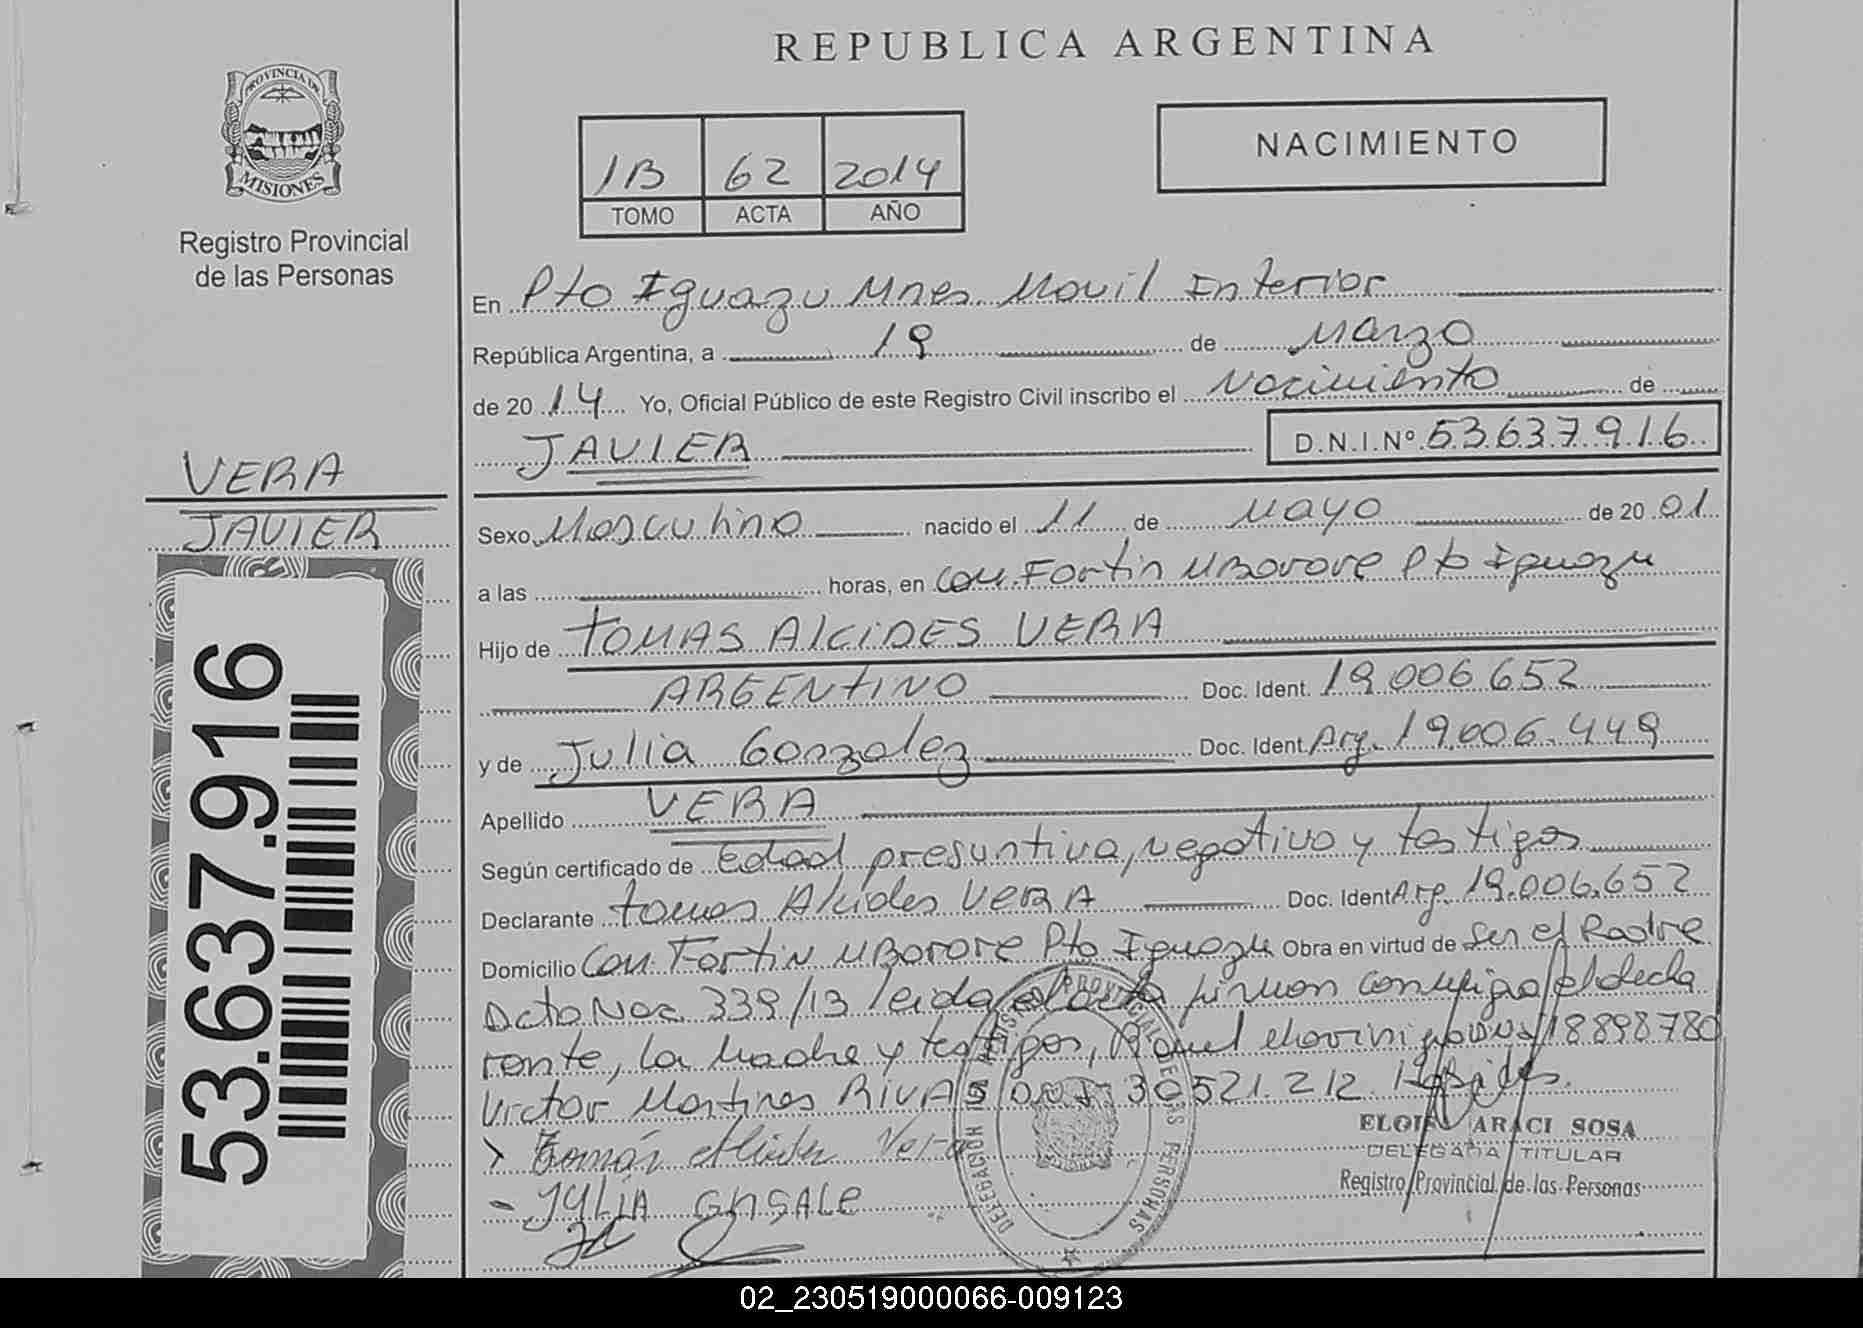 REPUBLICA ARGENTINA
PROVINCIA DE
MISIONES
Registro Provincial
de las Personas
1B 62 2014
TOMO ACTA AÑO
NACIMIENTO
En Pto Iguazu Mnes. Movil Interior
República Argentina, a 19 de Marzo
de 2014 Yo, Oficial Público de este Registro Civil inscribo el Nacimiento de
JAVIER D.N.I.Nº 53.637.916
VERA
JAVIER
53.637.916
Sexo Masculino nacido el 11 de Mayo de 2001
a las horas, en Com. Fortin MBorore Pto Iguazu
Hijo de TOMAS AlciDES VERA
ARGENTINO Doc. Ident. 19.006.652
y de Julia Gonzalez Doc. Ident. Arg. 19.006.449
Apellido VERA
Según certificado de Edad presuntiva, negativo y testigos
Declarante Tomas Alcides VERA Doc. Ident Arg. 19.006.652
Domicilio Com. Fortin MBorore Pto Iguazu Obra en virtud de Ser el Padre
Dcto Nac. 339/13 leida el acta firman conmigo el decla
rante, la Madre y testigos, 18898780
Victor Martines RIVAS DNI 30521.212.
Tomás Alcides Vera
JULIA GNSALE
ELOISA ARACI SOSA
DELEGADA TITULAR
Registro Provincial de las Personas
DELEGACION PROVINCIAL DE LAS PERSONAS
02_230519000066-009123